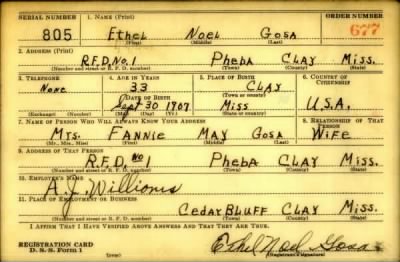 SERIAL NUMBER 1. NAME (Print) ORDER NUMBER
805 Ethel Noel Gosa 677
(First) (Middle) (Last)
2. ADDRESS (Print)
R.F.D. No. 1 Pheba CLAY Miss.
(Number and street or R. F. D. number) (Town) (County) (State)
3. TELEPHONE 4. AGE IN YEARS 5. PLACE OF BIRTH 6. COUNTRY OF CITIZENSHIP
None 33 CLAY
(Town or county)
DATE OF BIRTH
Sept 30 1907 Miss U.S.A.
(Exchange) (Number) (Mo.) (Day) (Yr.) (State or country)
7. NAME OF PERSON WHO WILL ALWAYS KNOW YOUR ADDRESS 8. RELATIONSHIP OF THAT PERSON
Mrs. Fannie May Gosa Wife
(Mr., Mrs., Miss) (First) (Middle) (Last)
9. ADDRESS OF THAT PERSON
R.F.D. No 1 Pheba CLAY Miss.
(Number and street or R. F. D. number) (Town) (County) (State)
10. EMPLOYER'S NAME
A. J. Willioms
11. PLACE OF EMPLOYMENT OR BUSINESS
Cedar Bluff CLAY Miss.
(Number and street or R. F. D. number) (Town) (County) (State)
I AFFIRM THAT I HAVE VERIFIED ABOVE ANSWERS AND THAT THEY ARE TRUE.
REGISTRATION CARD
D. S. S. Form 1 Ethel Noel Gosa
(Registrant's signature)